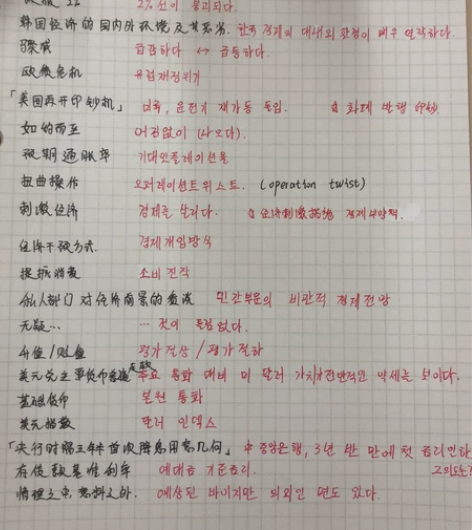 2%선이 붕괴되다.
韩国经济的国内外环境及其恶劣. 한국 경제의 대내외 환경이 매우 열악하다.
骤减 급감하다 ↔ 급등하다.
欧债危机 유럽재정위기
「美国再开印钞机」 미국, 윤전기 재가동 돌입. 화폐 발행
如约而至 어김없이 (나오다).
预期通胀率 기대인플레이션율
扭曲操作 오퍼레이션트위스트. (operation twist)
刺激经济 경제를 살리다. 经济刺激措施 경제부양책.
经济干预方式 경제개입방식
提振消费 소비 진작
私人部门对经济前景的 민간부문의 비관적 경제전망
无疑… … 것이 틀림없다.
升值/贬值 평가절상/평가절하
美元兑主要货币 주요 통화 대비 미 달러 가치가 전반적인 약세를 보이다.
基础货币 본원 통화
美元指数 달러 인덱스
「央行时隔三年半首次降息用意几何」 中 중앙은행, 3년 반 만에 첫 금리인하
存贷款基准利率 예대금 기준금리.
情理之中, 意料之外. 예상된 바이지만 의외인 면도 있다.